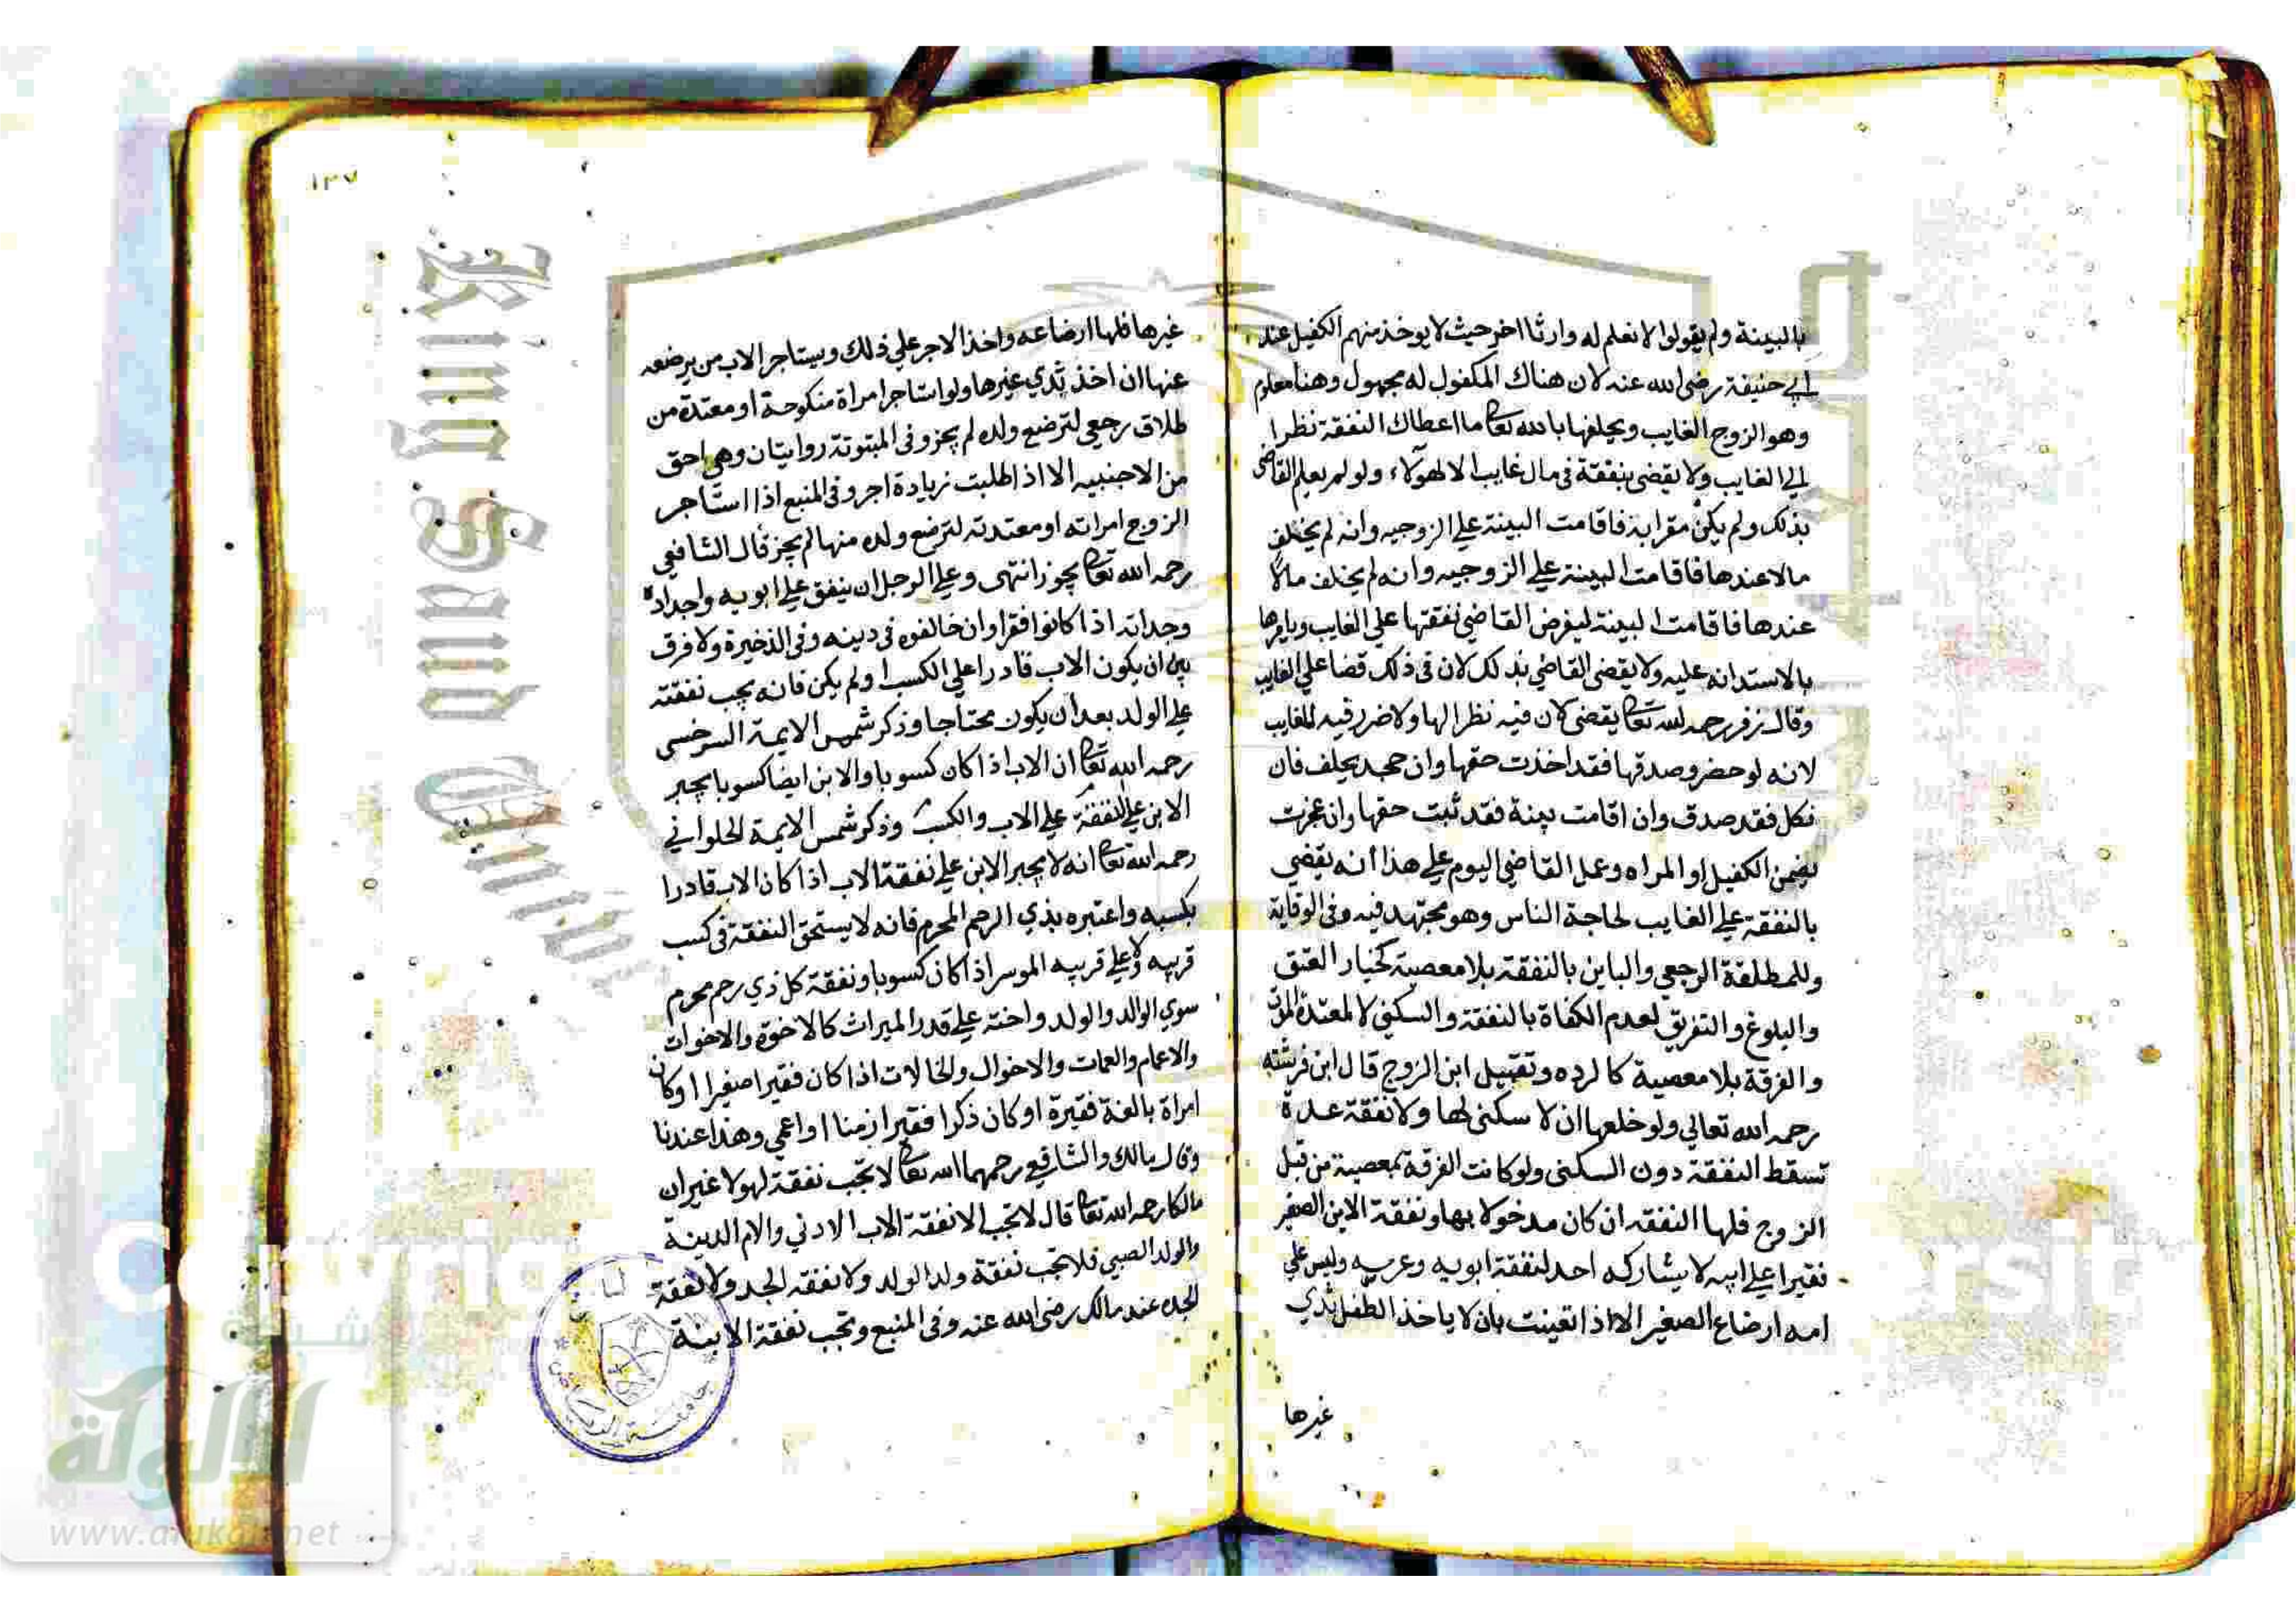 بالبينة ولم يقولوا لا نعلم له وارثا اخر حيث لا يوخذ منهم الكفيل عند
ابي حنيفة رضي الله عنه لان هناك المكفول له مجهول وهنا معلوم
وهو الزوج الغايب ويحلفها بالله تعا ما اعطاك النفقة نظرا
الي الغايب ولا يقضي بنفقة في مال غايب الا لهولاء ولو لم يعلم القاضي
بذلك ولم يكن مقرا به فاقامت البينة علي الزوجيه وانه لم يخلف
مالا عندها فاقامت البينة علي الزوجيه وانه لم يخلف مالا
عندها فاقامت البينة ليفرض القاضي نفقتها علي الغايب ويامرها
بالاستدانه عليه ولا يقضي القاضي بذلك لان في ذلك قضا علي الغايب
وقال زفر رحمه الله تعا يقضي لان فيه نظرا لها ولا ضرر فيه للغايب
لانه لو حضر وصدقها فقد اخذت حقها وان جحد يحلف فان
نكل فقد صدق وان اقامت بينة فقد ثبت حقها وان عجزت
يضمن الكفيل او المراه وعمل القاضي اليوم علي هذا انه يقضي
بالنفقة علي الغايب لحاجة الناس وهو مجتهد فيه وفي الوقاية
وللمطلقة الرجعي والباين بالنفقة بلا معصية كخيار العتق
والبلوغ والتفريق لعدم الكفاة بالنفقة والسكني لا لمعتدة الموت
والفرقة بلا معصية كالرده وتقبيل ابن الزوج قال ابن فرشته
رحمه الله تعالي ولو خلعها ان لا سكني لها ولا نفقة عدة
تسقط النفقة دون السكني ولو كانت الفرقة بمعصية من قبل
الزوج فلها النفقه ان كان مدخولا بها ونفقة الابن الصغير
فقيرا علي ابيه لا يشاركه احد لنفقة ابويه وعرسه وليس علي
امه ارضاع الصغير الا اذا تعينت بان لا ياخذ الطفل ثدي
غيرها
١٣٧
غيرها فلها ارضاعه واخذ الاجر علي ذلك ويستاجر الاب من يرضعه
عنها ان اخذ ثدي غيرها ولو استاجر امراة منكوحة او معتدة من
طلاق رجعي لترضع ولده لم يجز وفي المبتوتة روايتان وهي احق
من الاجنبيه الا اذا طلبت زيادة اجر وفي المنبع اذا استاجر
الزوج امراته او معتدته لترضع ولده منها لم يجز قال الشافعي
رحمه الله تعا يجوز انتهي وعلي الرجل ان ينفق علي ابويه واجداده
وجداته اذا كانوا فقرا وان خالفوه في دينه وفي الذخيرة ولا فرق
بين ان يكون الاب قادرا علي الكسب او لم يكن فانه يجب نفقته
علي الولد بعد ان يكون محتاجا وذكر شمس الايمة السرخسي
رحمه الله تعا ان الاب اذا كان كسوبا والابن ايضا كسوبا يجبر
الابن علي النفقة علي الاب والكسب وذكر شمس الايمة الحلواني
رحمه الله تعا انه لا يجبر الابن علي نفقة الاب اذا كان الاب قادرا
بكسبه واعتبره بذي الرحم المحرم فانه لا يستحق النفقة في كسب
قريبه ولا علي قريبه الموسر اذا كان كسوبا ونفقة كل ذي رحم محرم
سوي الوالد والولد واخته علي قدر الميراث كالاخوة والاخوات
والاعمام والعمات والاخوال والخالات اذا كان فقيرا صغيرا او كان
امراة بالغة فقيرة او كان ذكرا فقيرا زمنا او اعمي وهذا عندنا
وقال مالك والشافعي رحمهما الله تعا لا تجب نفقة لهولا غير ان
مالكا رحمه الله تعا قال لا تجب الا نفقة الاب الادني والام الدينة
والولد الصبي فلا تجب نفقة ولد الولد ولا نفقه الجد ولا نفقة
الجده عند مالك رضي الله عنه وفي المنبع وتجب نفقة الابنة
King Saud University
شبكة
الألوكة
www.alukah.net